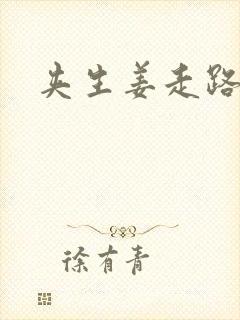 夹生姜走路
徐有青